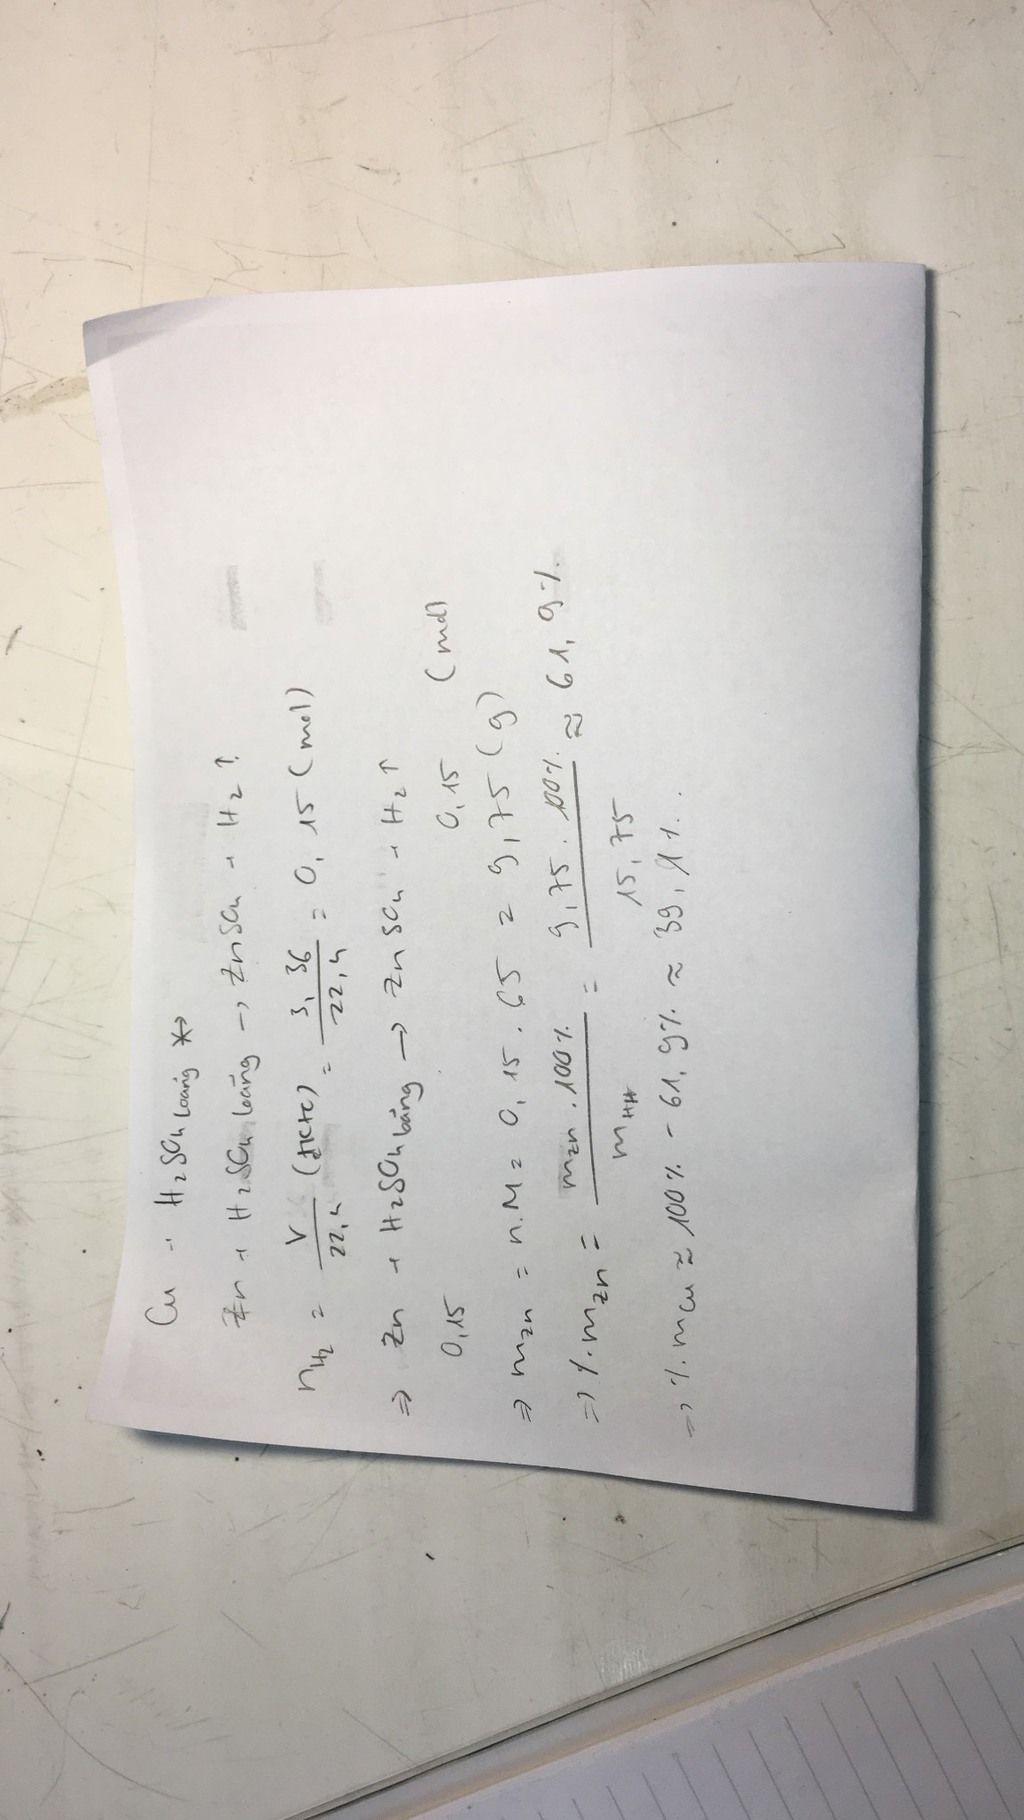 Cu + H₂SO₄ loãng ↛
Zn + H₂SO₄ loãng → ZnSO₄ + H₂↑
nH₂ = V/22,4 (đktc) = 3,36/22,4 = 0,15 (mol)
⇒ Zn + H₂SO₄ loãng → ZnSO₄ + H₂↑
0,15 0,15 (mol)
⇒ mZn = n.M = 0,15 . 65 = 9,75 (g)
⇒ %mZn = mZn . 100% / mHH = 9,75 . 100% / 15,75 ≈ 61,9%
⇒ %mCu ≈ 100% - 61,9% ≈ 39,1%.